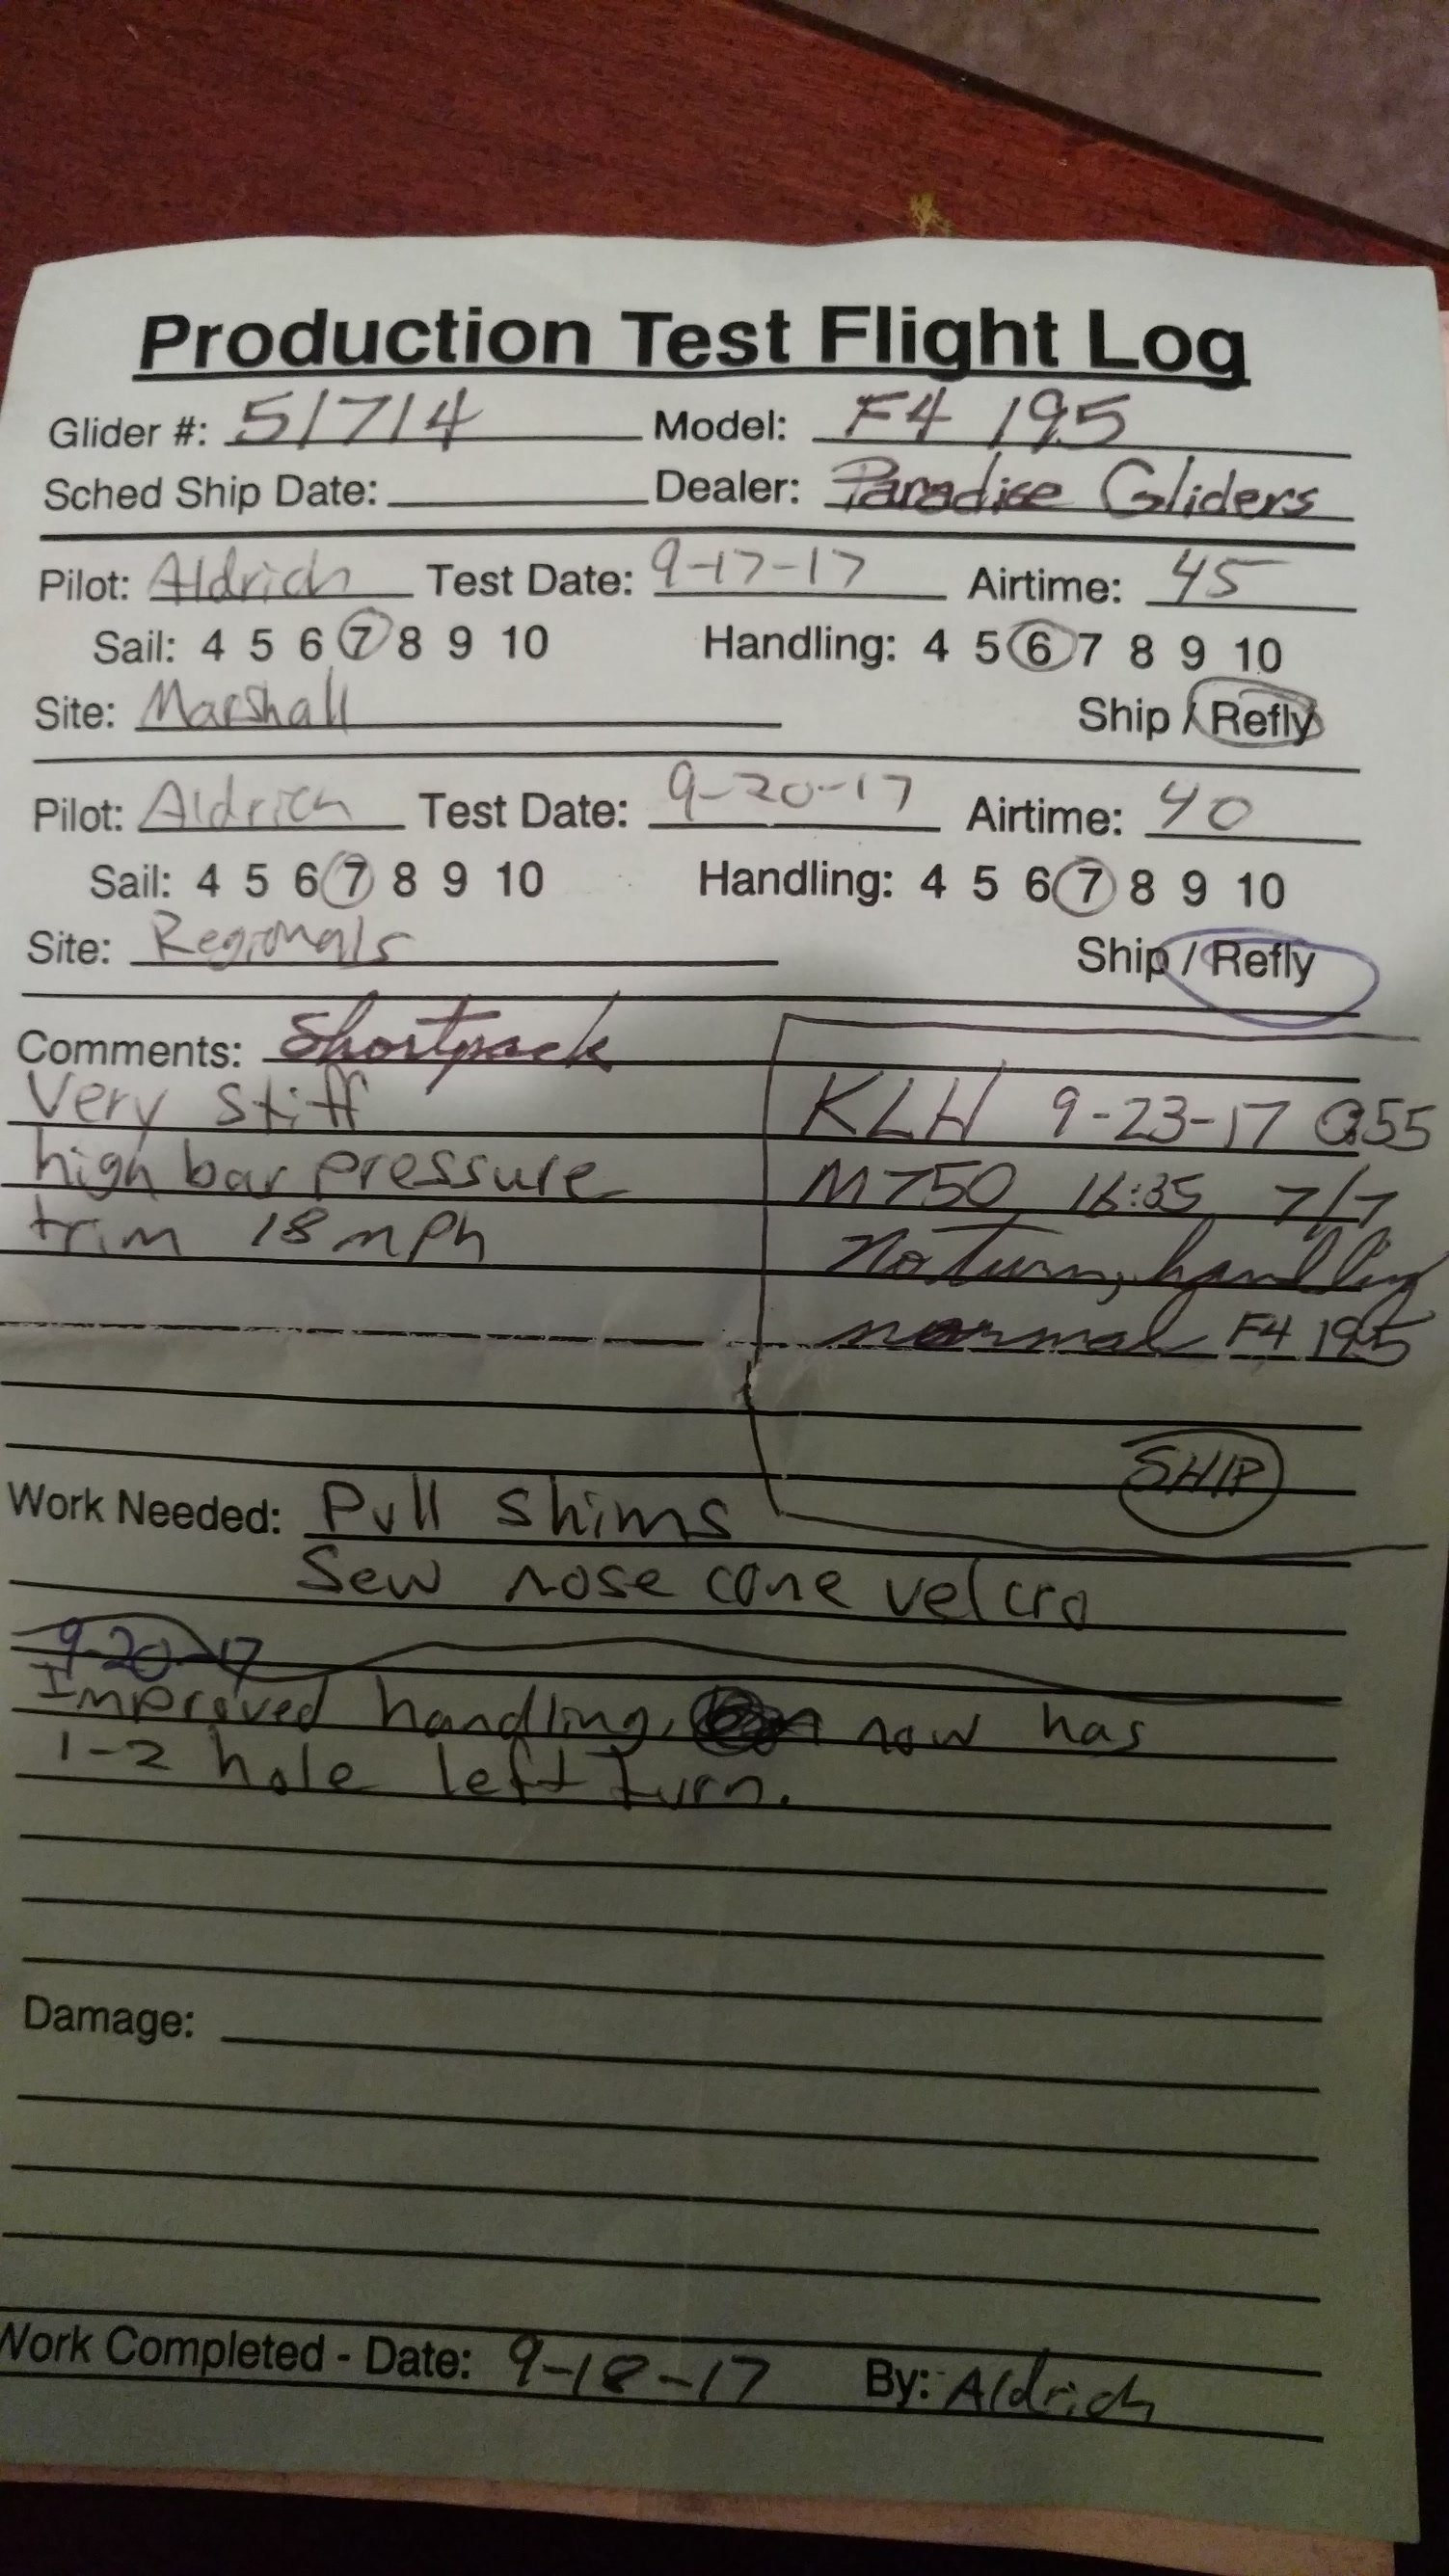 Production Test Flight Log
Glider #: 51714 Model: F4 195
Sched Ship Date: Dealer: Paradise Gliders
Pilot: Aldrich Test Date: 9-17-17 Airtime: 45
Sail: 4 5 6 7 8 9 10 Handling: 4 5 6 7 8 9 10
Site: Marshall Ship / Refly
Pilot: Aldrich Test Date: 9-20-17 Airtime: 40
Sail: 4 5 6 7 8 9 10 Handling: 4 5 6 7 8 9 10
Site: Regionals Ship / Refly
Comments: Shortpack
Very stiff
high bar pressure
trim 18 mph
KLH 9-23-17 :55
M750 16:35 7/7
No turn, handling
normal F4 195
SHIP
Work Needed: Pull shims
Sew nose cone velcro
9-20-17
Improved handling, now has
1-2 hole left turn.
Damage:
Work Completed - Date: 9-18-17 By: Aldrich